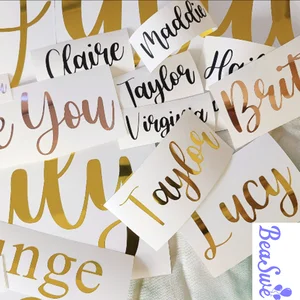 Maddie
Claire
Taylor
Virginia
e You
Brit
Taylor
Lucy
uly
nge
BeaSwe